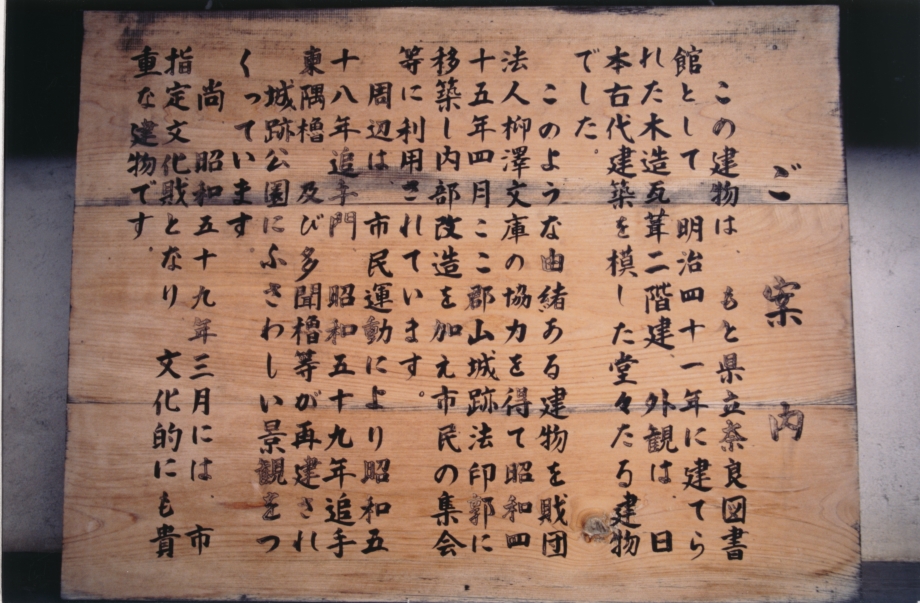 ご案内
この建物は　もと県立奈良図書
館として　明治四十一年に建てら
れた木造瓦葺二階建　外観は　日
本古代建築を模した堂々たる建物
でした。
このような由緒ある建物を財団
法人柳澤文庫の協力を得て昭和四
十五年四月ここ郡山城跡法印郭に
移築し内部改造を加え市民の集会
等に利用されています。
周辺は　市民運動により昭和五
十八年追手門　昭和五十九年追手
東隅櫓　及び多聞櫓等が再建され
城跡公園にふさわしい景観をつ
くっています
尚　昭和五十九年三月には　市
指定文化財となり　文化的にも貴
重な建物です。